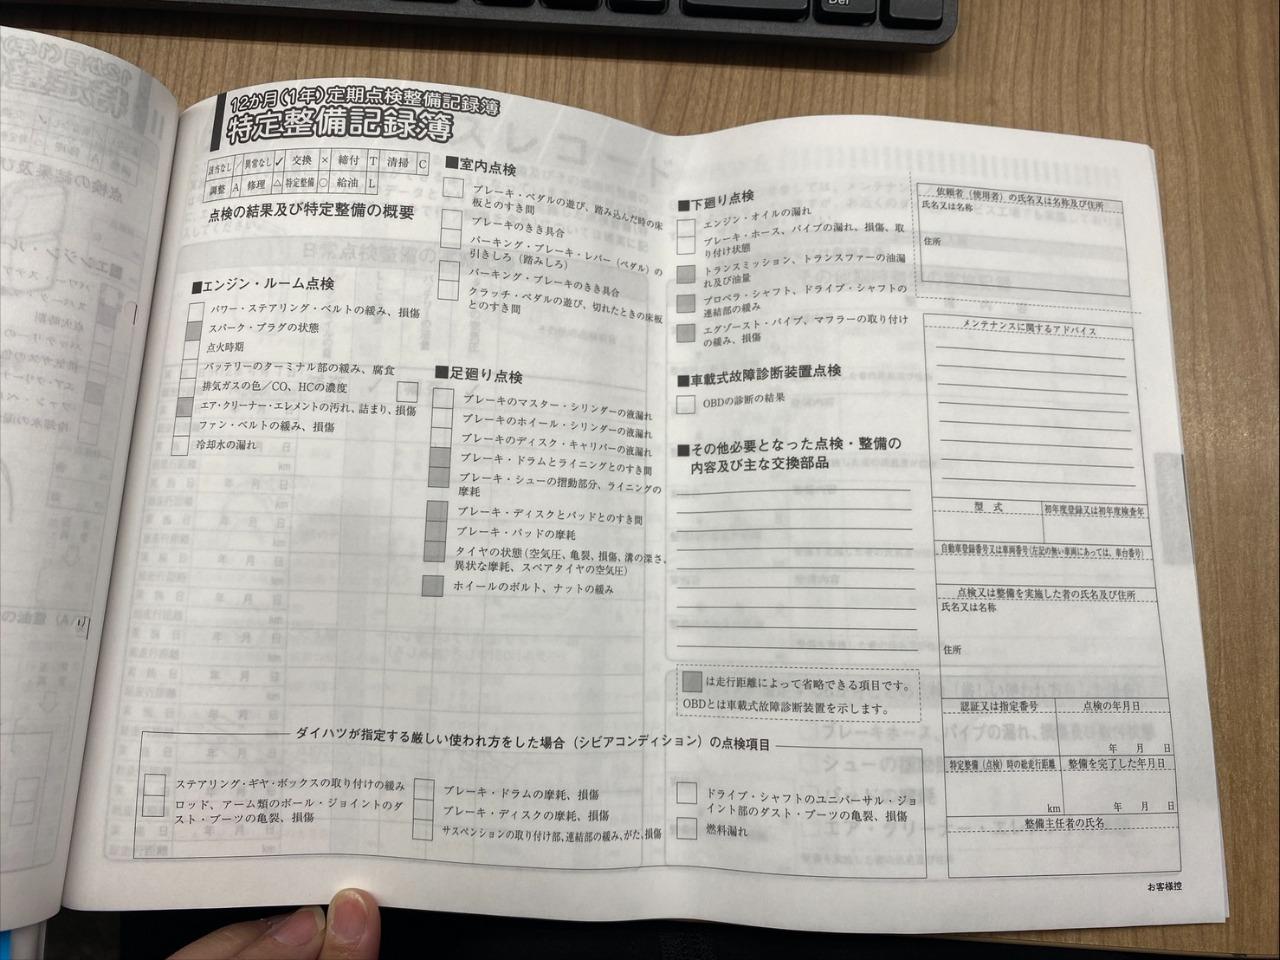 Del
12か月(1年)定期点検整備記録簿
特定整備記録簿
該当なし ／ 異常なし ✓ 交換 × 締付 T 清掃 C
調整 A 修理 △ 特定整備 ○ 給油 L
点検の結果及び特定整備の概要
■エンジン・ルーム点検
パワー・ステアリング・ベルトの緩み、損傷
スパーク・プラグの状態
点火時期
バッテリーのターミナル部の緩み、腐食
排気ガスの色／CO、HCの濃度
エア・クリーナー・エレメントの汚れ、詰まり、損傷
ファン・ベルトの緩み、損傷
冷却水の漏れ
■室内点検
ブレーキ・ペダルの遊び、踏み込んだ時の床
板とのすき間
ブレーキのきき具合
パーキング・ブレーキ・レバー（ペダル）の
引きしろ（踏みしろ）
パーキング・ブレーキのきき具合
クラッチ・ペダルの遊び、切れたときの床板
とのすき間
■足廻り点検
ブレーキのマスター・シリンダーの液漏れ
ブレーキのホイール・シリンダーの液漏れ
ブレーキのディスク・キャリパーの液漏れ
ブレーキ・ドラムとライニングとのすき間
ブレーキ・シューの摺動部分、ライニングの
摩耗
ブレーキ・ディスクとパッドとのすき間
ブレーキ・パッドの摩耗
タイヤの状態（空気圧、亀裂、損傷、溝の深さ、
異状な摩耗、スペアタイヤの空気圧）
ホイールのボルト、ナットの緩み
■下廻り点検
エンジン・オイルの漏れ
ブレーキ・ホース、パイプの漏れ、損傷、取
り付け状態
トランスミッション、トランスファーの油漏
れ及び油量
プロペラ・シャフト、ドライブ・シャフトの
連結部の緩み
エグゾースト・パイプ、マフラーの取り付け
の緩み、損傷
■車載式故障診断装置点検
OBDの診断の結果
■その他必要となった点検・整備の
内容及び主な交換部品
は走行距離によって省略できる項目です。
OBDとは車載式故障診断装置を示します。
依頼者（使用者）の氏名又は名称及び住所
氏名又は名称
住所
メンテナンスに関するアドバイス
型　式
初年度登録又は初年度検査年
自動車登録番号又は車両番号(左記の無い車両にあっては、車台番号)
点検又は整備を実施した者の氏名及び住所
氏名又は名称
住所
認証又は指定番号
点検の年月日
年　月　日
特定整備（点検）時の総走行距離
整備を完了した年月日
km
年　月　日
整備主任者の氏名
ダイハツが指定する厳しい使われ方をした場合（シビアコンディション）の点検項目
ステアリング・ギヤ・ボックスの取り付けの緩み
ロッド、アーム類のボール・ジョイントのダ
スト・ブーツの亀裂、損傷
ブレーキ・ドラムの摩耗、損傷
ブレーキ・ディスクの摩耗、損傷
サスペンションの取り付け部、連結部の緩み、がた、損傷
ドライブ・シャフトのユニバーサル・ジョ
イント部のダスト・ブーツの亀裂、損傷
燃料漏れ
お客様控